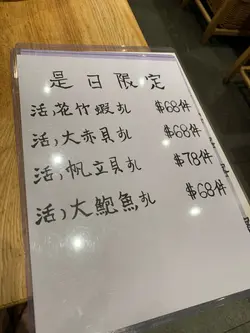 是日限定
活)花竹蝦乳 $68件
活)大赤貝乳 $68件
活)帆立貝乳 $78件
活)大鮑魚乳 $68件